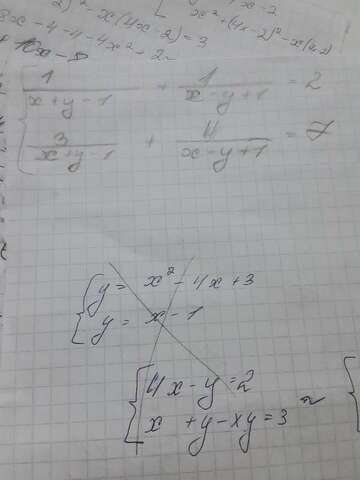 )² - x(4x-2) = 3
x² + (4x-2)² - x(4x-2)
3x - 4 - 4 - 4x² + 2
1/(x+y-1) + 1/(x-y+1) = 2
3/(x+y-1) + 4/(x-y+1) = 7
y = x² - 4x + 3
y = x - 1
4x - y = 2
x + y - xy = 3 ~